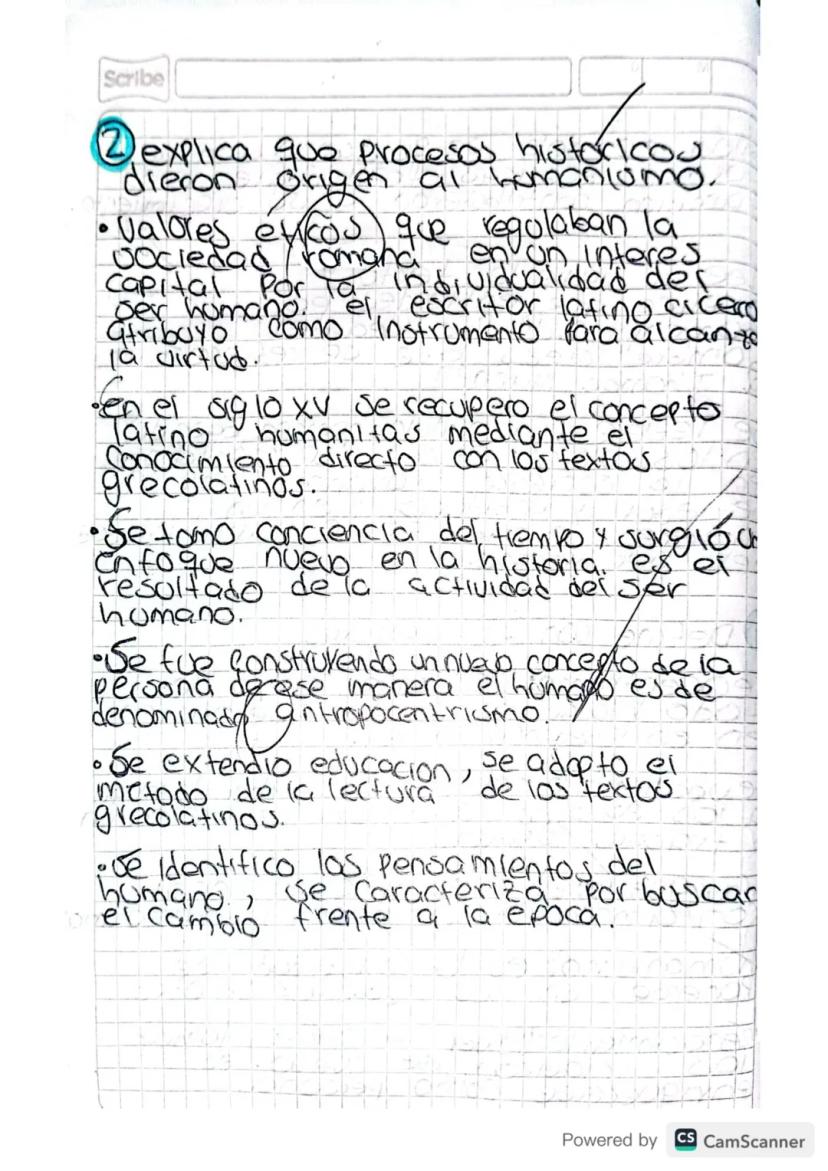 Scribe
② explica que procesos históricos
dieron origen al humanismo.
• valores eticos que regulaban la
sociedad romana en un interes
capital por la individualidad del
ser humano. el escritor latino cicero
atribuyo como instrumento para alcanza
la virtud.
• en el siglo xv se recupero el concepto
latino humanitas mediante el
conocimiento directo con los textos
grecolatinos.
• Se tomo conciencia del tiempo y surgió u
enfoque nuevo en la historia. es el
resultado de la actividad del ser
humano.
• Se fue construyendo un nuevo concepto de la
persona de ese manera el humano es de
denominado antropocentrismo.
• Se extendio educacion, se adopto el
metodo de la lectura de los textos
grecolatinos.
• se identifico los pensamientos del
humano, se caracteriza por buscar
el cambio frente a la epoca.
Powered by CS CamScanner